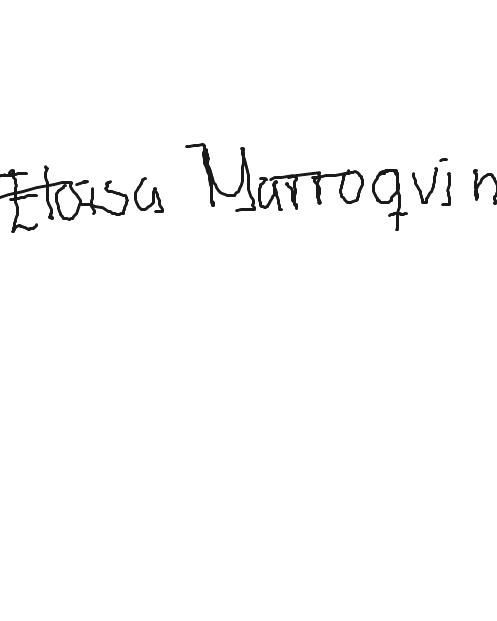 Eloisa Marroquin